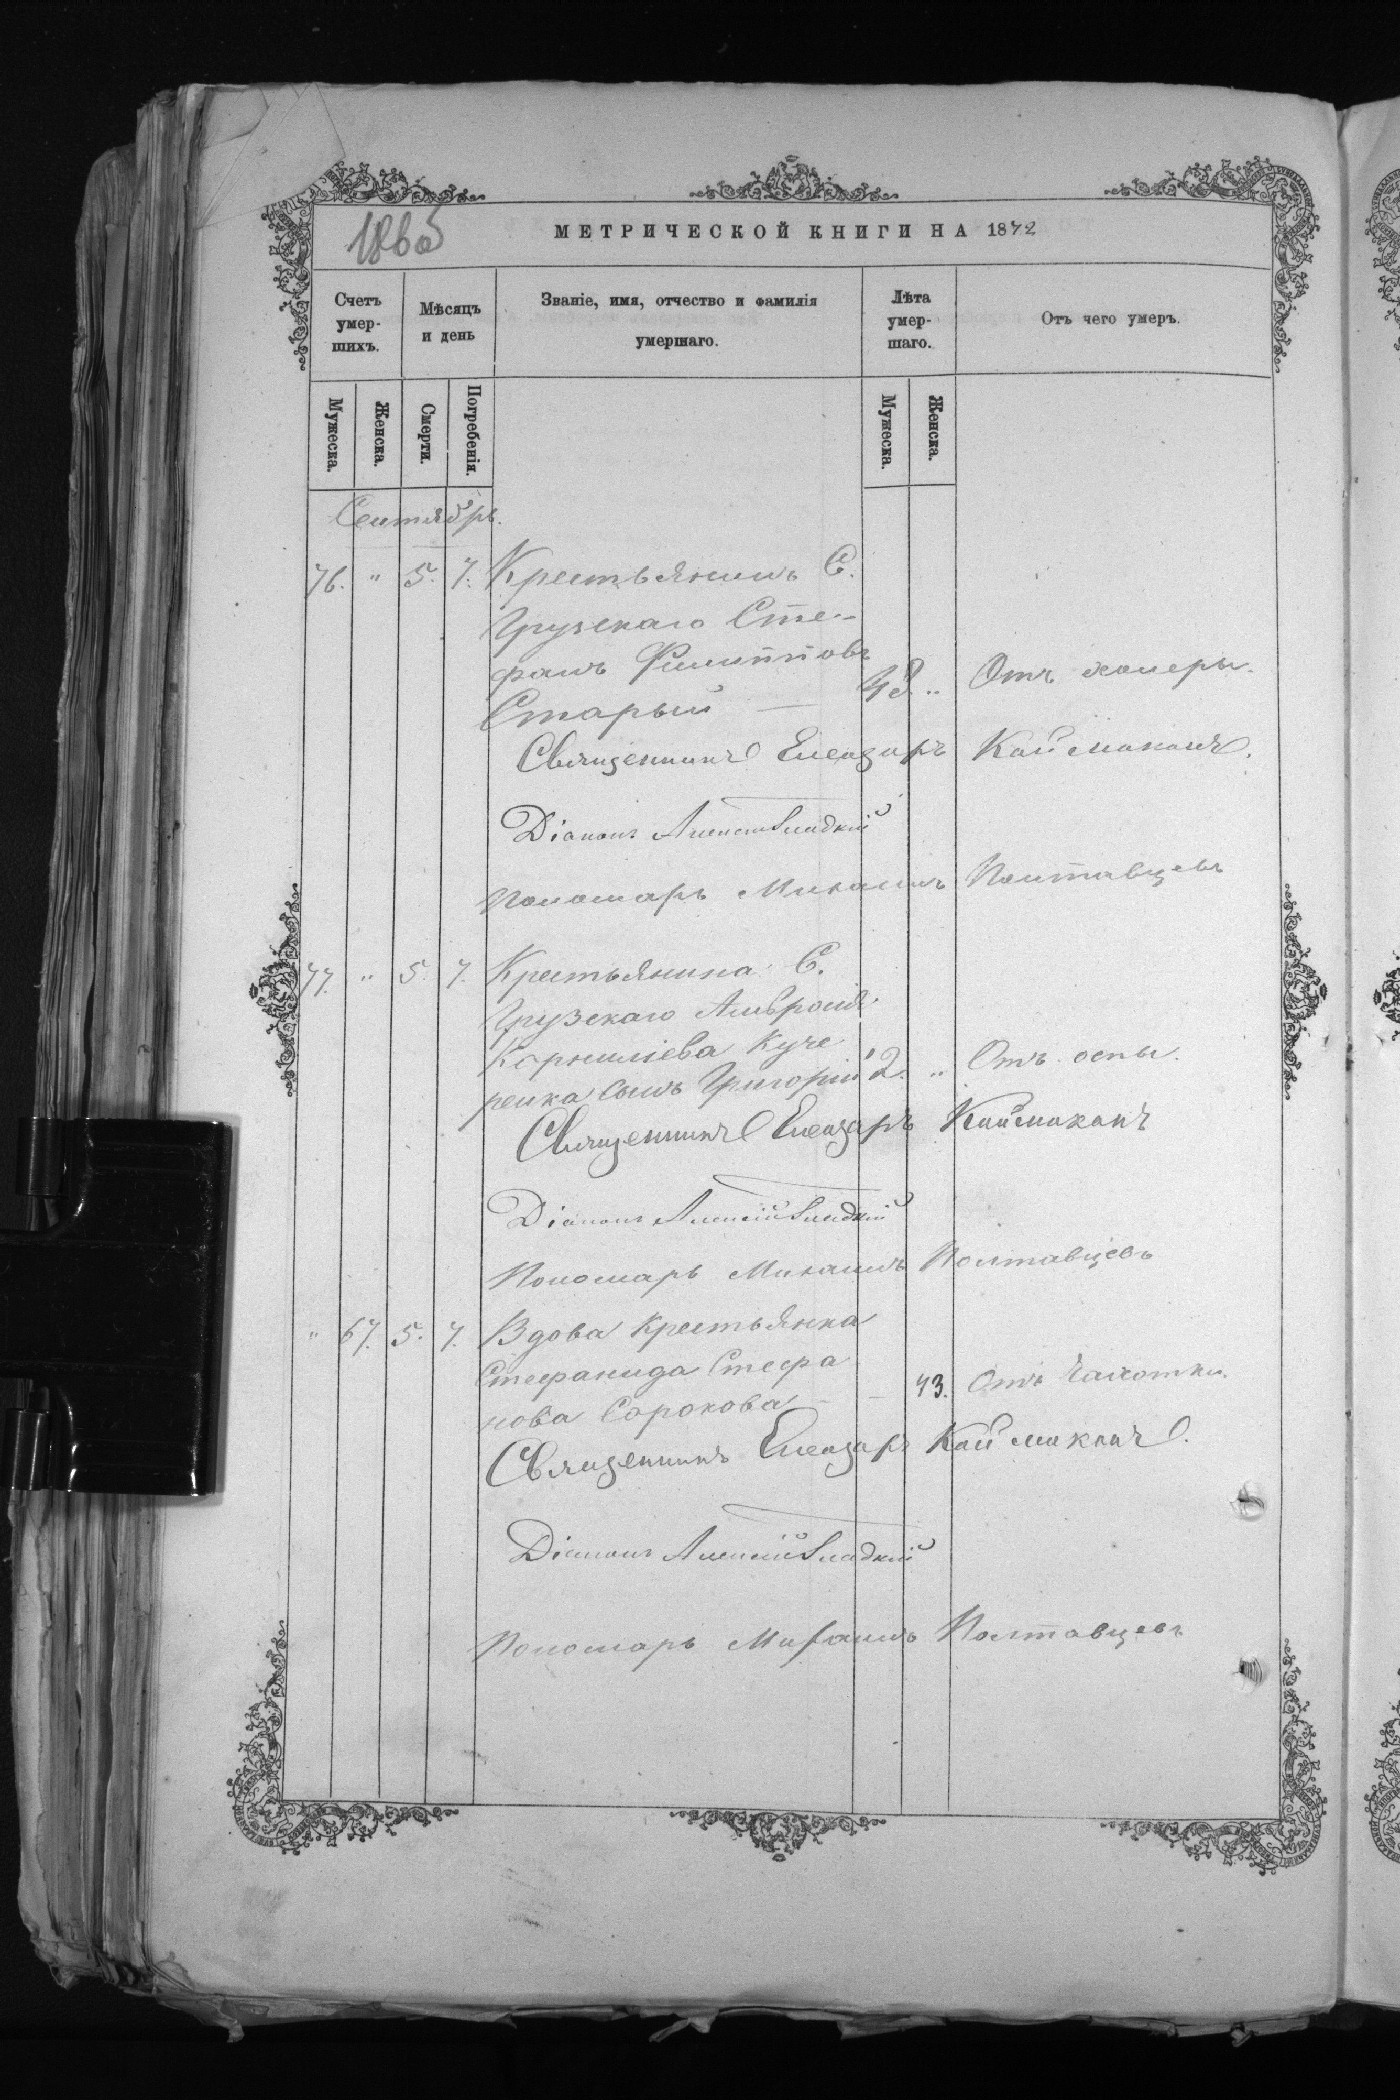 186об
МЕТРИЧЕСКОЙ КНИГИ НА 1872
Счетъ умер-шихъ.
Мѣсяцъ и день
Званіе, имя, отчество и фамилія умершаго.
Лѣта умер-шаго.
Отъ чего умеръ.
Мужеска.
Женска.
Смерти.
Погребенія.
Мужеска.
Женска.
Сентябрь.
76. " 5. 7. Крестьянинъ С.
Грузскаго Сте-
фанъ Филипповъ
Старый — 48. " Отъ холеры.
Священникъ Елеазаръ Каймаканъ.
Діаконъ Алексѣй Сладкій
Пономарь Михаилъ Полтавцевъ
77. " 5. 7. Крестьянина С.
Грузскаго Амвросія
Корнилiева Куче
ренка сынъ Григорій 2. " Отъ оспы.
Священникъ Елеазаръ Каймаканъ
Діаконъ Алексій Сладкій
Пономарь Михаилъ Полтавцевъ
" 67. 5. 7. Вдова Крестьянка
Стефанида Стефа
нова Сорокова — 43. Отъ Чахотки.
Священникъ Елеазаръ Каймаканъ.
Діаконъ Алексій Сладкій
Пономарь Михаилъ Полтавцевъ